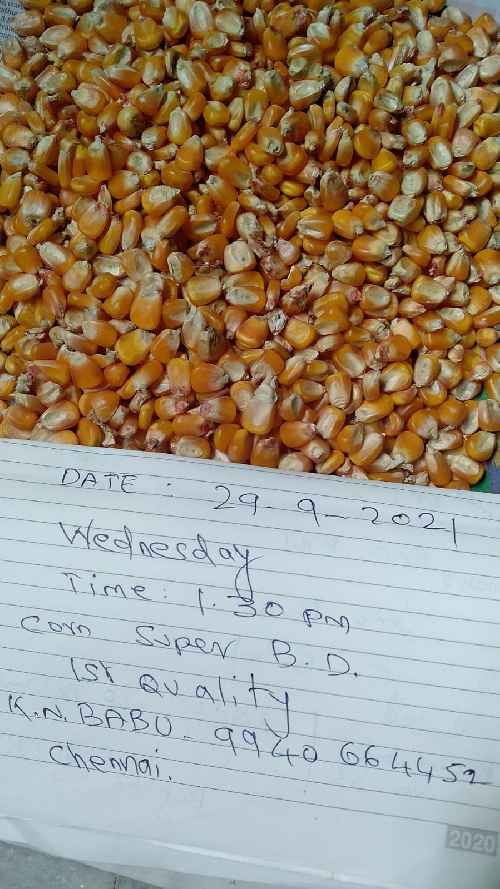 DATE : 29-9-2021
Wednesday
Time: 1.30 PM
Corn Super B.D.
1st Quality
K.N.BABU - 9940 664452
Chennai.
2020